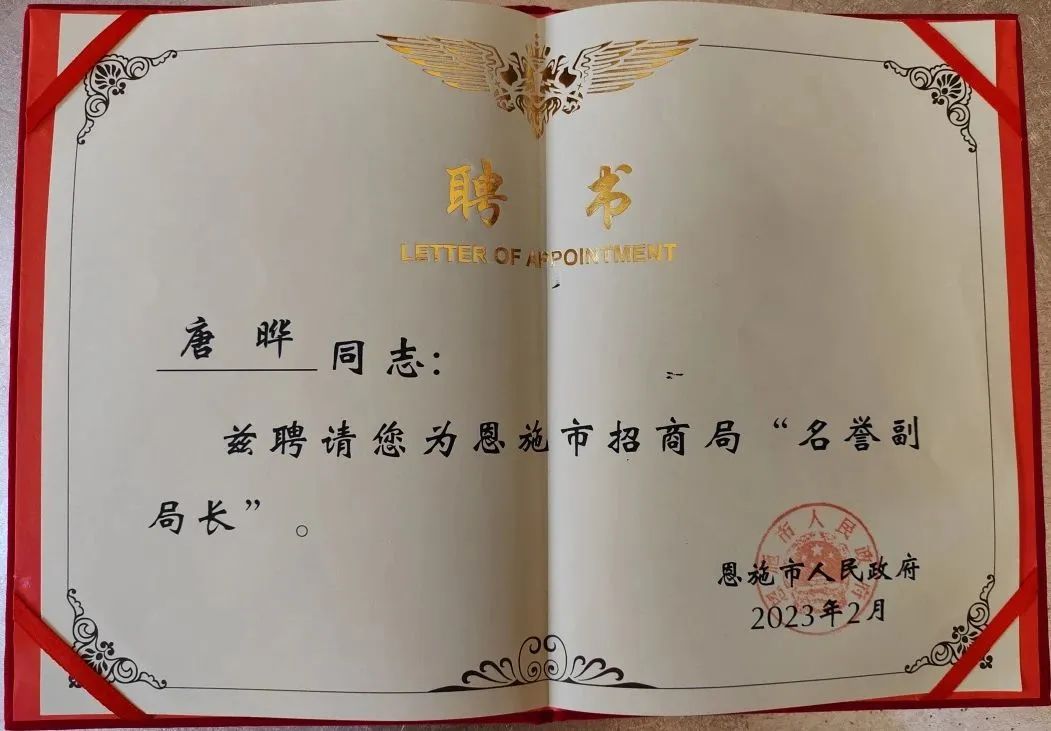 聘书
LETTER OF APPOINTMENT
唐晔同志：
兹聘请您为恩施市招商局“名誉副
局长”。
恩施市人民政府
2023年2月
恩施市人民政府